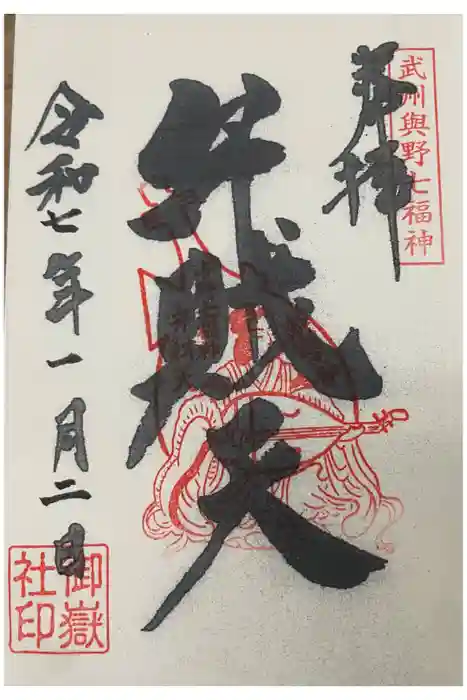 奉拝
武州與野七福神
弁財天
令和七年一月二日
御嶽
社印